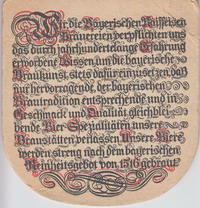 Wir, die Bayerischen Raiffeisen
Brauereien verpflichten uns
das durch jahrhundertelange Erfahrung
erworbene Wissen um die bayerische
Braukunst, stets dafür einzusetzen, daß
nur hervorragende, der bayerischen
Brautradition entsprechende und in
Geschmack und Qualität gleichblei-
bende Bier-Spezialitäten unsere
Braustätten verlassen. Unsere Biere
werden streng nach dem bayerischen
Reinheitsgebot von 1516 gebraut.